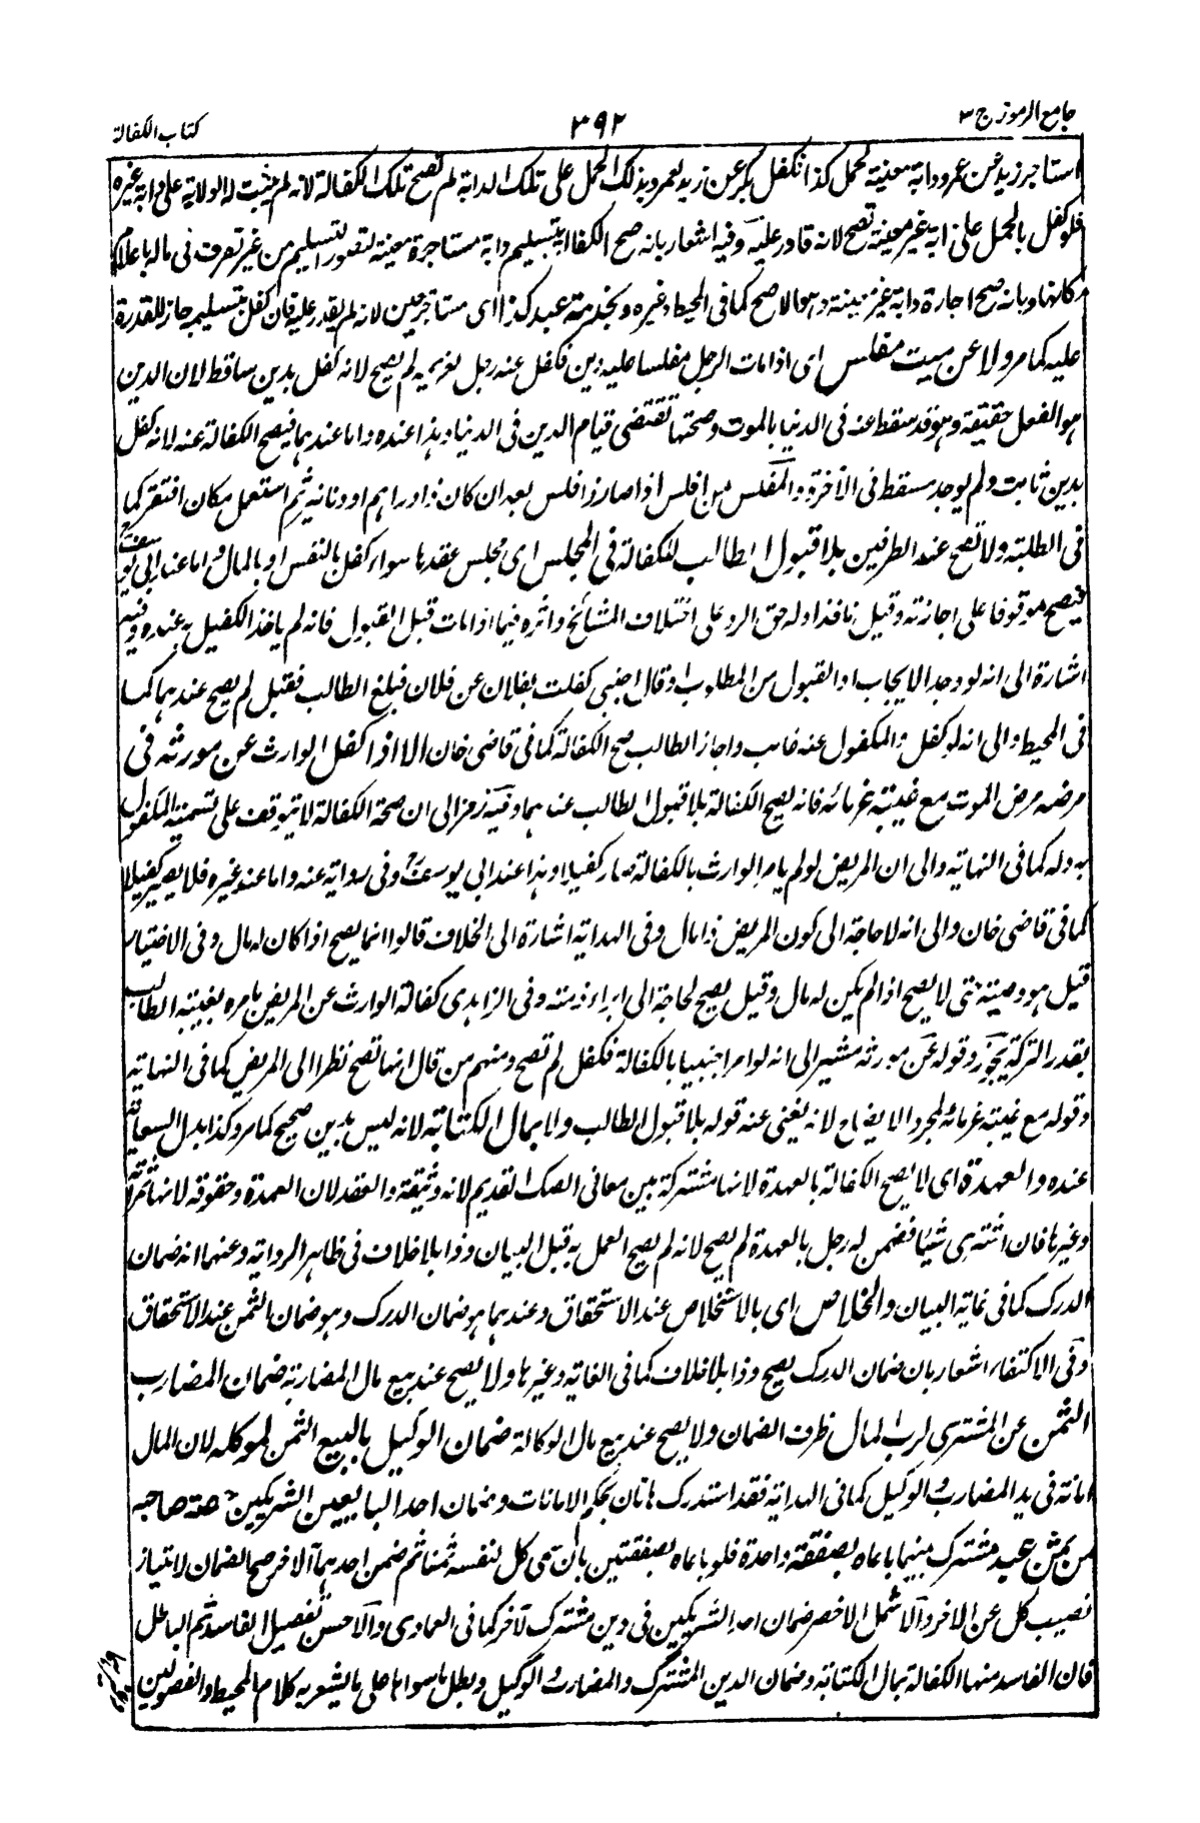 جامع الرموز ج ٣
٣٩٢
كتاب الكفالة
استاجر زيد من عمرو دابة معينة لحمل كذا فكفل بكر عن زيد لعمرو بذلك الحمل على تلك الدابة لم تصح تلك الكفالة لانه لم يثبت له الولاية على دابة غيره
فلو كفل بالحمل على دابة غير معينة تصح لانه قادر عليه وفيه اشعار بانه صح الكفالة بتسليم دابة مستاجرة معينة لتصور التسليم من غير تصرف فى ماله باعلام
مكانها وبانه صح اجارة دابة غير معينة وهو الاصح كما فى المحيط وغيره وبخدمة عبد كذا اى مستاجر معين لانه لم يقدر عليه فان كفل بتسليمه جاز للقدرة
عليه كما مر ولا عن ميت مفلس اى اذا مات الرجل مفلسا عليه دين فكفل عنه رجل لغريمه لم يصح لانه كفل بدين ساقط لان الدين
هو الفعل حقيقة وهو قد سقط عنه فى الدنيا بالموت وصحتها تقتضى قيام الدين فى الدنيا وهذا عنده واما عندهما فيصح الكفالة عنه لانه كفل
بدين ثابت ولم يوجد مسقط فى الآخرة والمفلس من افلس اذا صار ذا فلس بعد ان كان ذا دراهم او دنانير ثم استعمل مكان افتقر كما
فى الطلبة ولا تصح عند الطرفين بلا قبول الطالب للكفالة فى المجلس اى مجلس عقدها سواء كفل بالنفس او بالمال واما عند ابى يوسف
فيصح موقوفا على اجازته وقيل نافذا وله حق الرد على اختلاف المشائخ واثره فيما اذا مات قبل القبول فانه لم ياخذ الكفيل به عنده وفيه
اشارة الى انه لو وجد الايجاب او القبول من المطلوب او قال اجنبى كفلت بفلان عن فلان فبلغ الطالب فقبل لم يصح عندهما كما
فى المحيط والى انه لو كفل والمكفول عنه غائب واجاز الطالب صح الكفالة كما فى قاضى خان الا اذا كفل الوارث عن مورثه فى
مرضه مرض الموت مع غيبة غرمائه فانه يصح الكفالة بلا قبول الطالب عندهما وفيه رمز الى ان صحة الكفالة لا يتوقف على تسمية المكفول
به وله كما فى النهاية والى ان المريض لو لم يامر الوارث بالكفالة صار كفيلا وهذا عند ابى يوسف وفى رواية عنه واما عند غيره فلا يصير كفيلا
كما فى قاضى خان والى انه لا حاجة الى كون المريض ذا مال وفى الهداية اشارة الى الخلاف قالوا انما يصح اذا كان له مال وفى الاختيار
قيل هو وصية حتى لا يصح اذا لم يكن له مال وقيل يصح لحاجة الى ابراء ذمته وفى الزاهدى كفالة الوارث عن المريض بامره بغيبة الطالب
بقدر التركة يجوز وقوله عن مورثه مشير الى انه لو امر اجنبيا بالكفالة فكفل لم تصح ومنهم من قال انها تصح نظرا الى المريض كما فى النهاية
وقوله مع غيبة غرمائه لمجرد الايضاح لانه يغنى عنه قوله بلا قبول الطالب ولا بمال الكتابة لانه ليس بدين صحيح كما مر وكذا بدل السعاية
عنده والعهدة اى لا يصح الكفالة بالعهدة لانها مشتركة بين معانى الصك القديم لانه وثيقة والعقد لان العهدة وحقوقه لانها ثمرته
وغيرها فان اشترى شيئا فضمن له رجل بالعهدة لم يصح لانه لم يصح العمل به قبل البيان وذا بلا خلاف فى ظاهر الرواية وعنهما انه ضمان
الدرك كما فى غاية البيان والخلاص اى بالاستخلاص عند الاستحقاق وعندهما هو ضمان الدرك وهو ضمان الثمن عند الاستحقاق
وفى الاكتفاء اشعار بان ضمان الدرك يصح وذا بلا خلاف كما فى الغاية وغيرها ولا يصح عند بيع مال المضاربة ضمان المضارب
الثمن عن المشترى لرب المال ظرف الضمان ولا يصح عند بيع مال الوكالة ضمان الوكيل بالبيع الثمن لموكله لان المال
امانة فى يد المضارب والوكيل كما فى الهداية فقد استدرك هاتان بحكم الامانات وضمان احد البايعين الشريكين حصة صاحبه
من ثمن عبد مشترك بينهما باعاه بصفقة واحدة فلو باعاه بصفقتين بان سمى كل لنفسه ثمنا ثم ضمن احدهما الآخر صح الضمان لامتياز
نصيب كل عن الآخر والاشمل الاخصر ضمان احد الشريكين فى دين مشترك لآخر كما فى العمادى والاحسن تفصيل الفاسد ثم الباطل
فان الفاسد منها الكفالة بمال الكتابة وضمان الدين المشترك والمضارب والوكيل ويطل ما سواها على ما يشعر به كلام المحيط والفصولين